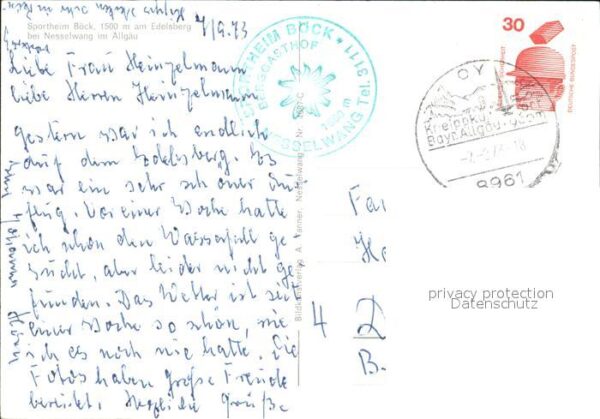 Sportheim Böck, 1500 m am Edelsberg
bei Nesselwang im Allgäu
7/9.73
Liebe Frau Heinzelmann
liebe Herren Heinzelmann
gestern war ich endlich
auf dem Edelsberg. Es
war ein sehr schöner Aus
flug. Vor einer Woche hatte
ich schon den Wasserfall ge
sucht, aber leider nicht ge
funden. Das Wetter ist seit
einer Woche so schön, wie
ich es noch nie hatte. Die
Fotos haben große Freude
bereitet. Herzliche Grüße
Johannes
SPORTHEIM BÖCK
BERGGASTHOF
1500 m
NESSELWANG Tel. 3111
Bildkunstverlag A. Tanner, Nesselwang
30
DEUTSCHE BUNDESPOST
OY
Bayr. Allgäu
8961
Fa
4
2
B.
privacy protection
Datenschutz